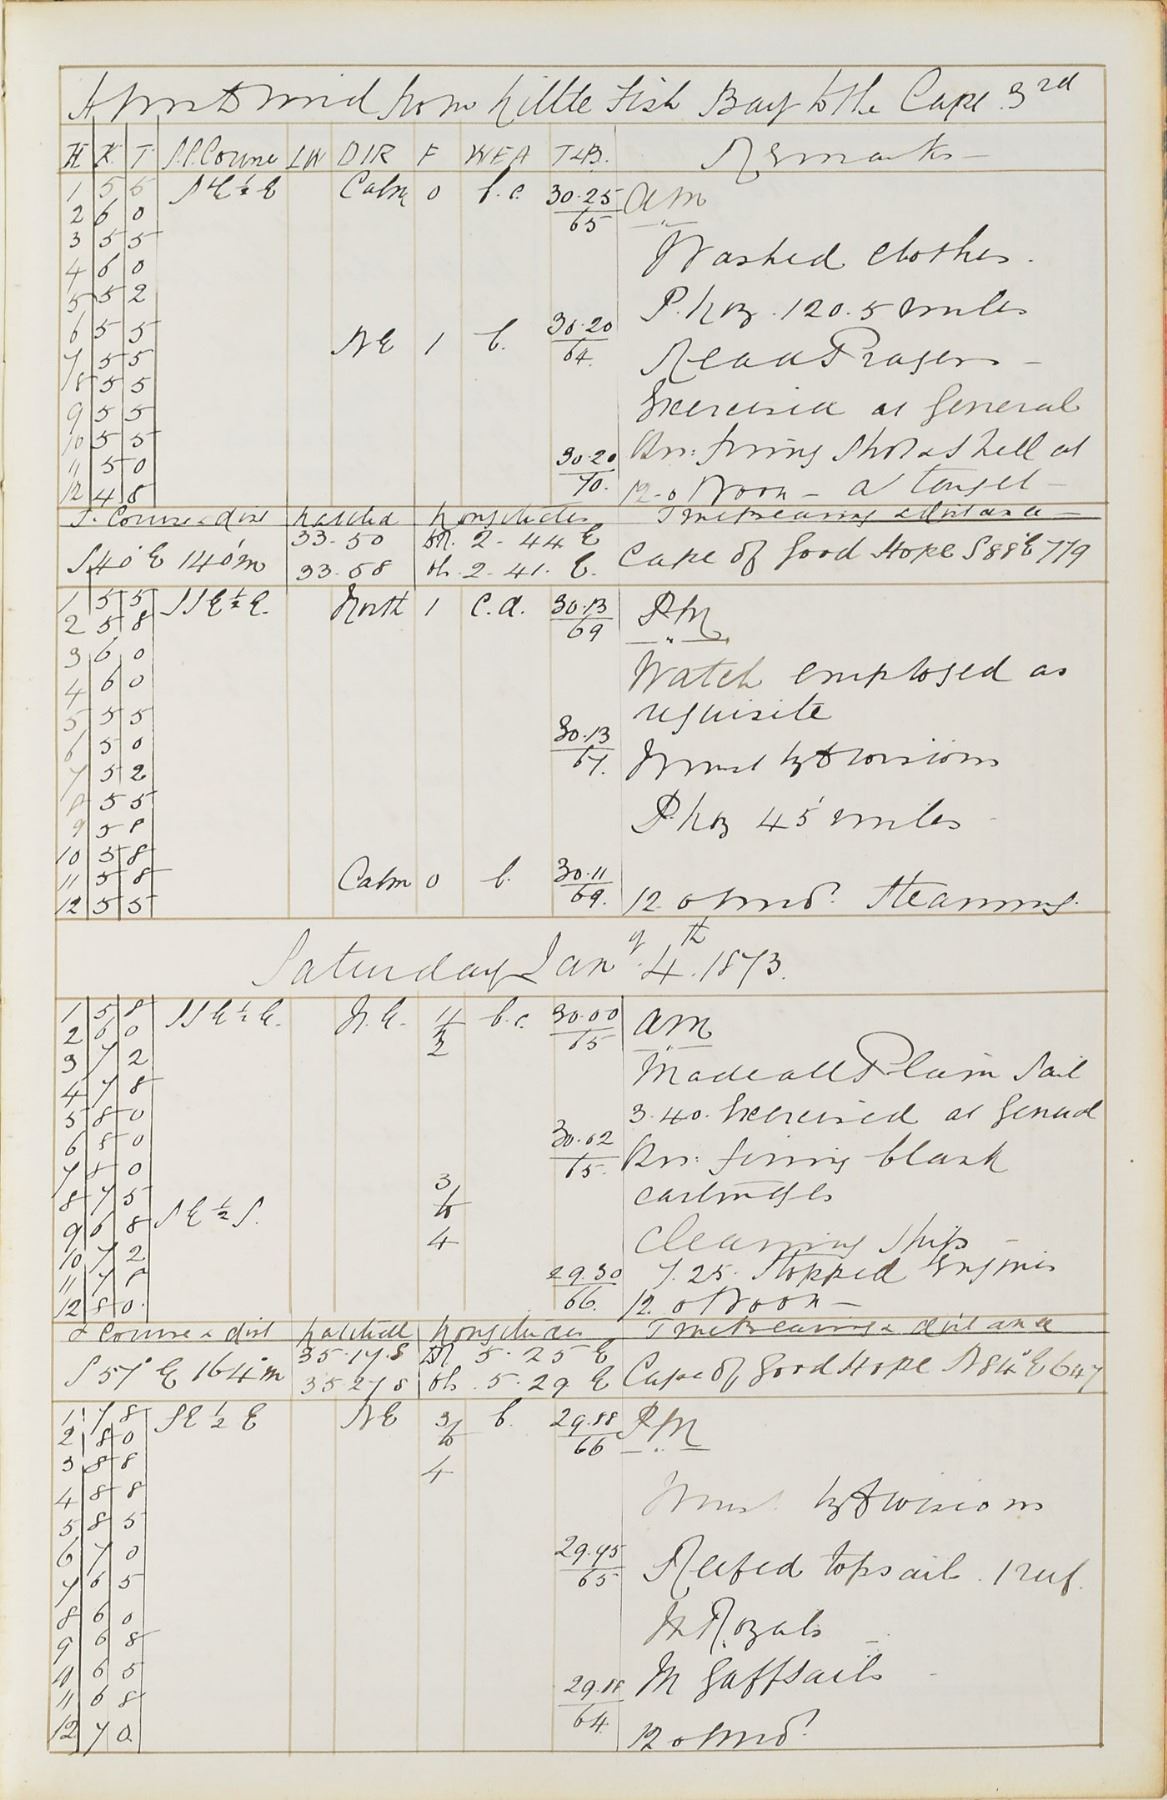 from Little Fish Bay to the Cape 3rd
H K T S.P. Course LW DIR F WEA T&B. Remarks
1 5 5 SE½E Calm 0 b.c. 30.25/65 am
2 6 0
3 5 5 Washed Clothes.
4 6 0
5 5 2 P. Log. 120.5 miles
6 5 5 NE 1 b. 30.20/64.
7 5 5 Read Prayers
8 5 5
9 5 5 Exercised at General
10 5 5 Qrs: firing Shot & Shell at
11 5 0 30.20/70.
12 4 8 12.0 Noon - a target
T. Course & dist Latitud Longitudes True Bearing & distance
S40°E 140'm 33.50 DR. 2.44 E Cape of Good Hope S88°E 779
33.58 Ch. 2.41. E.
1 5 5 SSE½E. North 1 C.d. 30.13/69 PM
2 5 8
3 6 0 Watch employed as
4 6 0
5 5 5 requisite
6 5 0 30.13/67.
7 5 2 by Divisions
8 5 5 P. Log 45 miles
9 5 8
10 5 8
11 5 8 Calm 0 b. 30.11/69.
12 5 5 12 Steaming.
Saturday Jany 4th. 1873.
1 5 8 SSE½E. N.E. 1/2 b.c. 30.00/65 am
2 6 0
3 7 2 Made all Plain Sail
4 7 8
5 8 0 3.40. Exercised at General
6 8 0 30.02/65. Qrs: firing blank
7 8 0
8 7 5 3/to cartridges
9 6 8 SE½S. 4 Cleaning Ship
10 7 2
11 7 8 29.30/66. 7.25. Stopped Engines
12 8 0. 12. 0 Noon
T Course & dist Latitude Longitudes True Bearing & distance
S57°E 164'm 35.17.S DR 5.25 E Cape of Good Hope N84°E 647
35.27 S Ch. 5.29 E
1 7 8 SE½E NE 3/to b. 29.88/66 PM
2 8 0
3 8 8 4
4 8 8 by Divisions
5 8 5
6 7 0 29.95/65 Reefed topsail. 1 reef.
7 6 5
8 6 0 Royals
9 6 8
10 6 5 Gaffsails
11 6 8 29.88/64.
12 7 0. 12